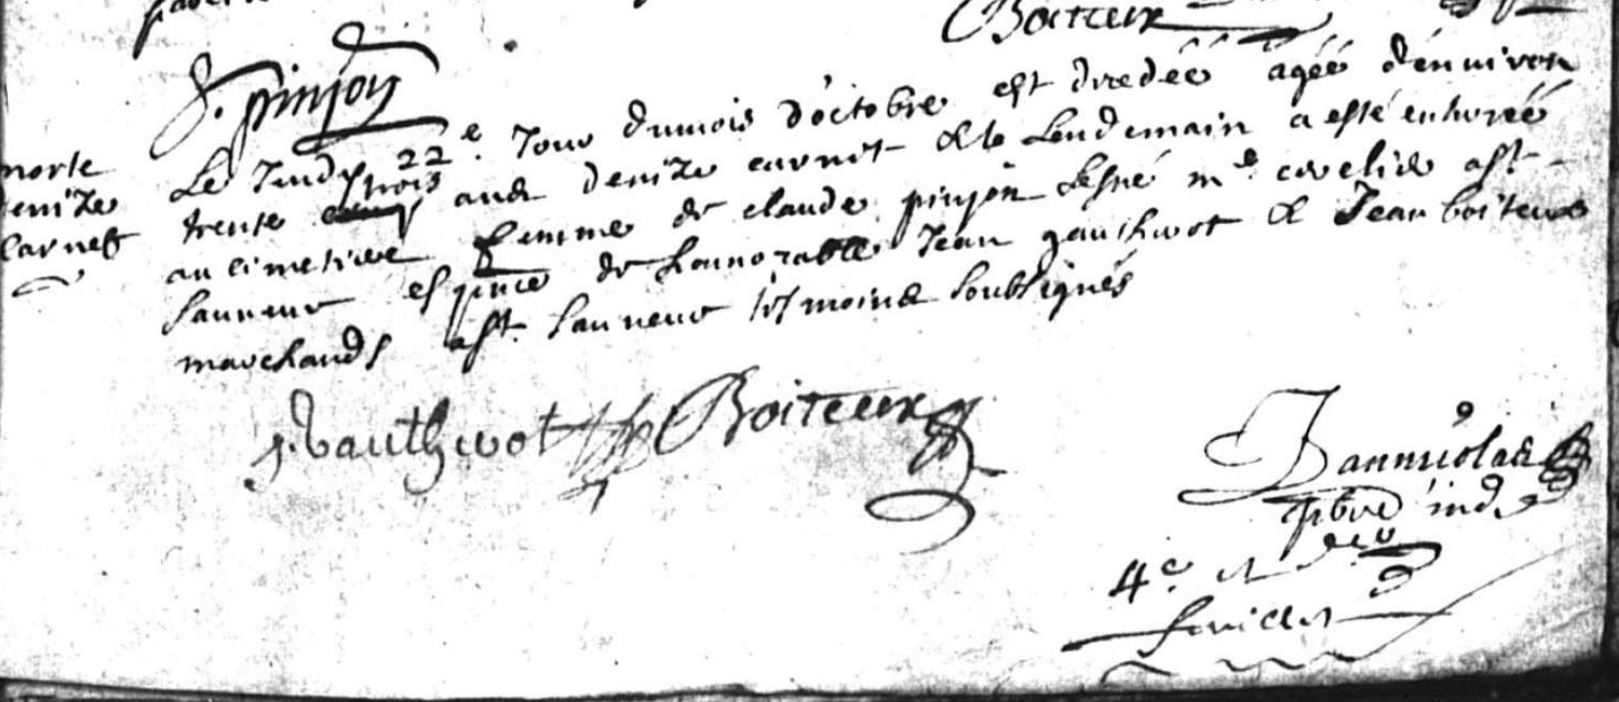 Boiteux
J. pinjon
morte
denize
Carnet
Le Jeudy 22e. Jour du mois d'octobre est decedéé agéé d'enuiron
trente trois ans denize carnet & le Lendemain a esté enhuréé
au cimetiere femme de claude pinjon Lesné md. cordier a St.
Sauueur es pnce de honnorable Jean gauthrot & Jean boiteux
marchands a St. Sauueur tesmoins soubsignés
J. Gauthrot Boiteux
pbre ind.
4e et der
feuillet